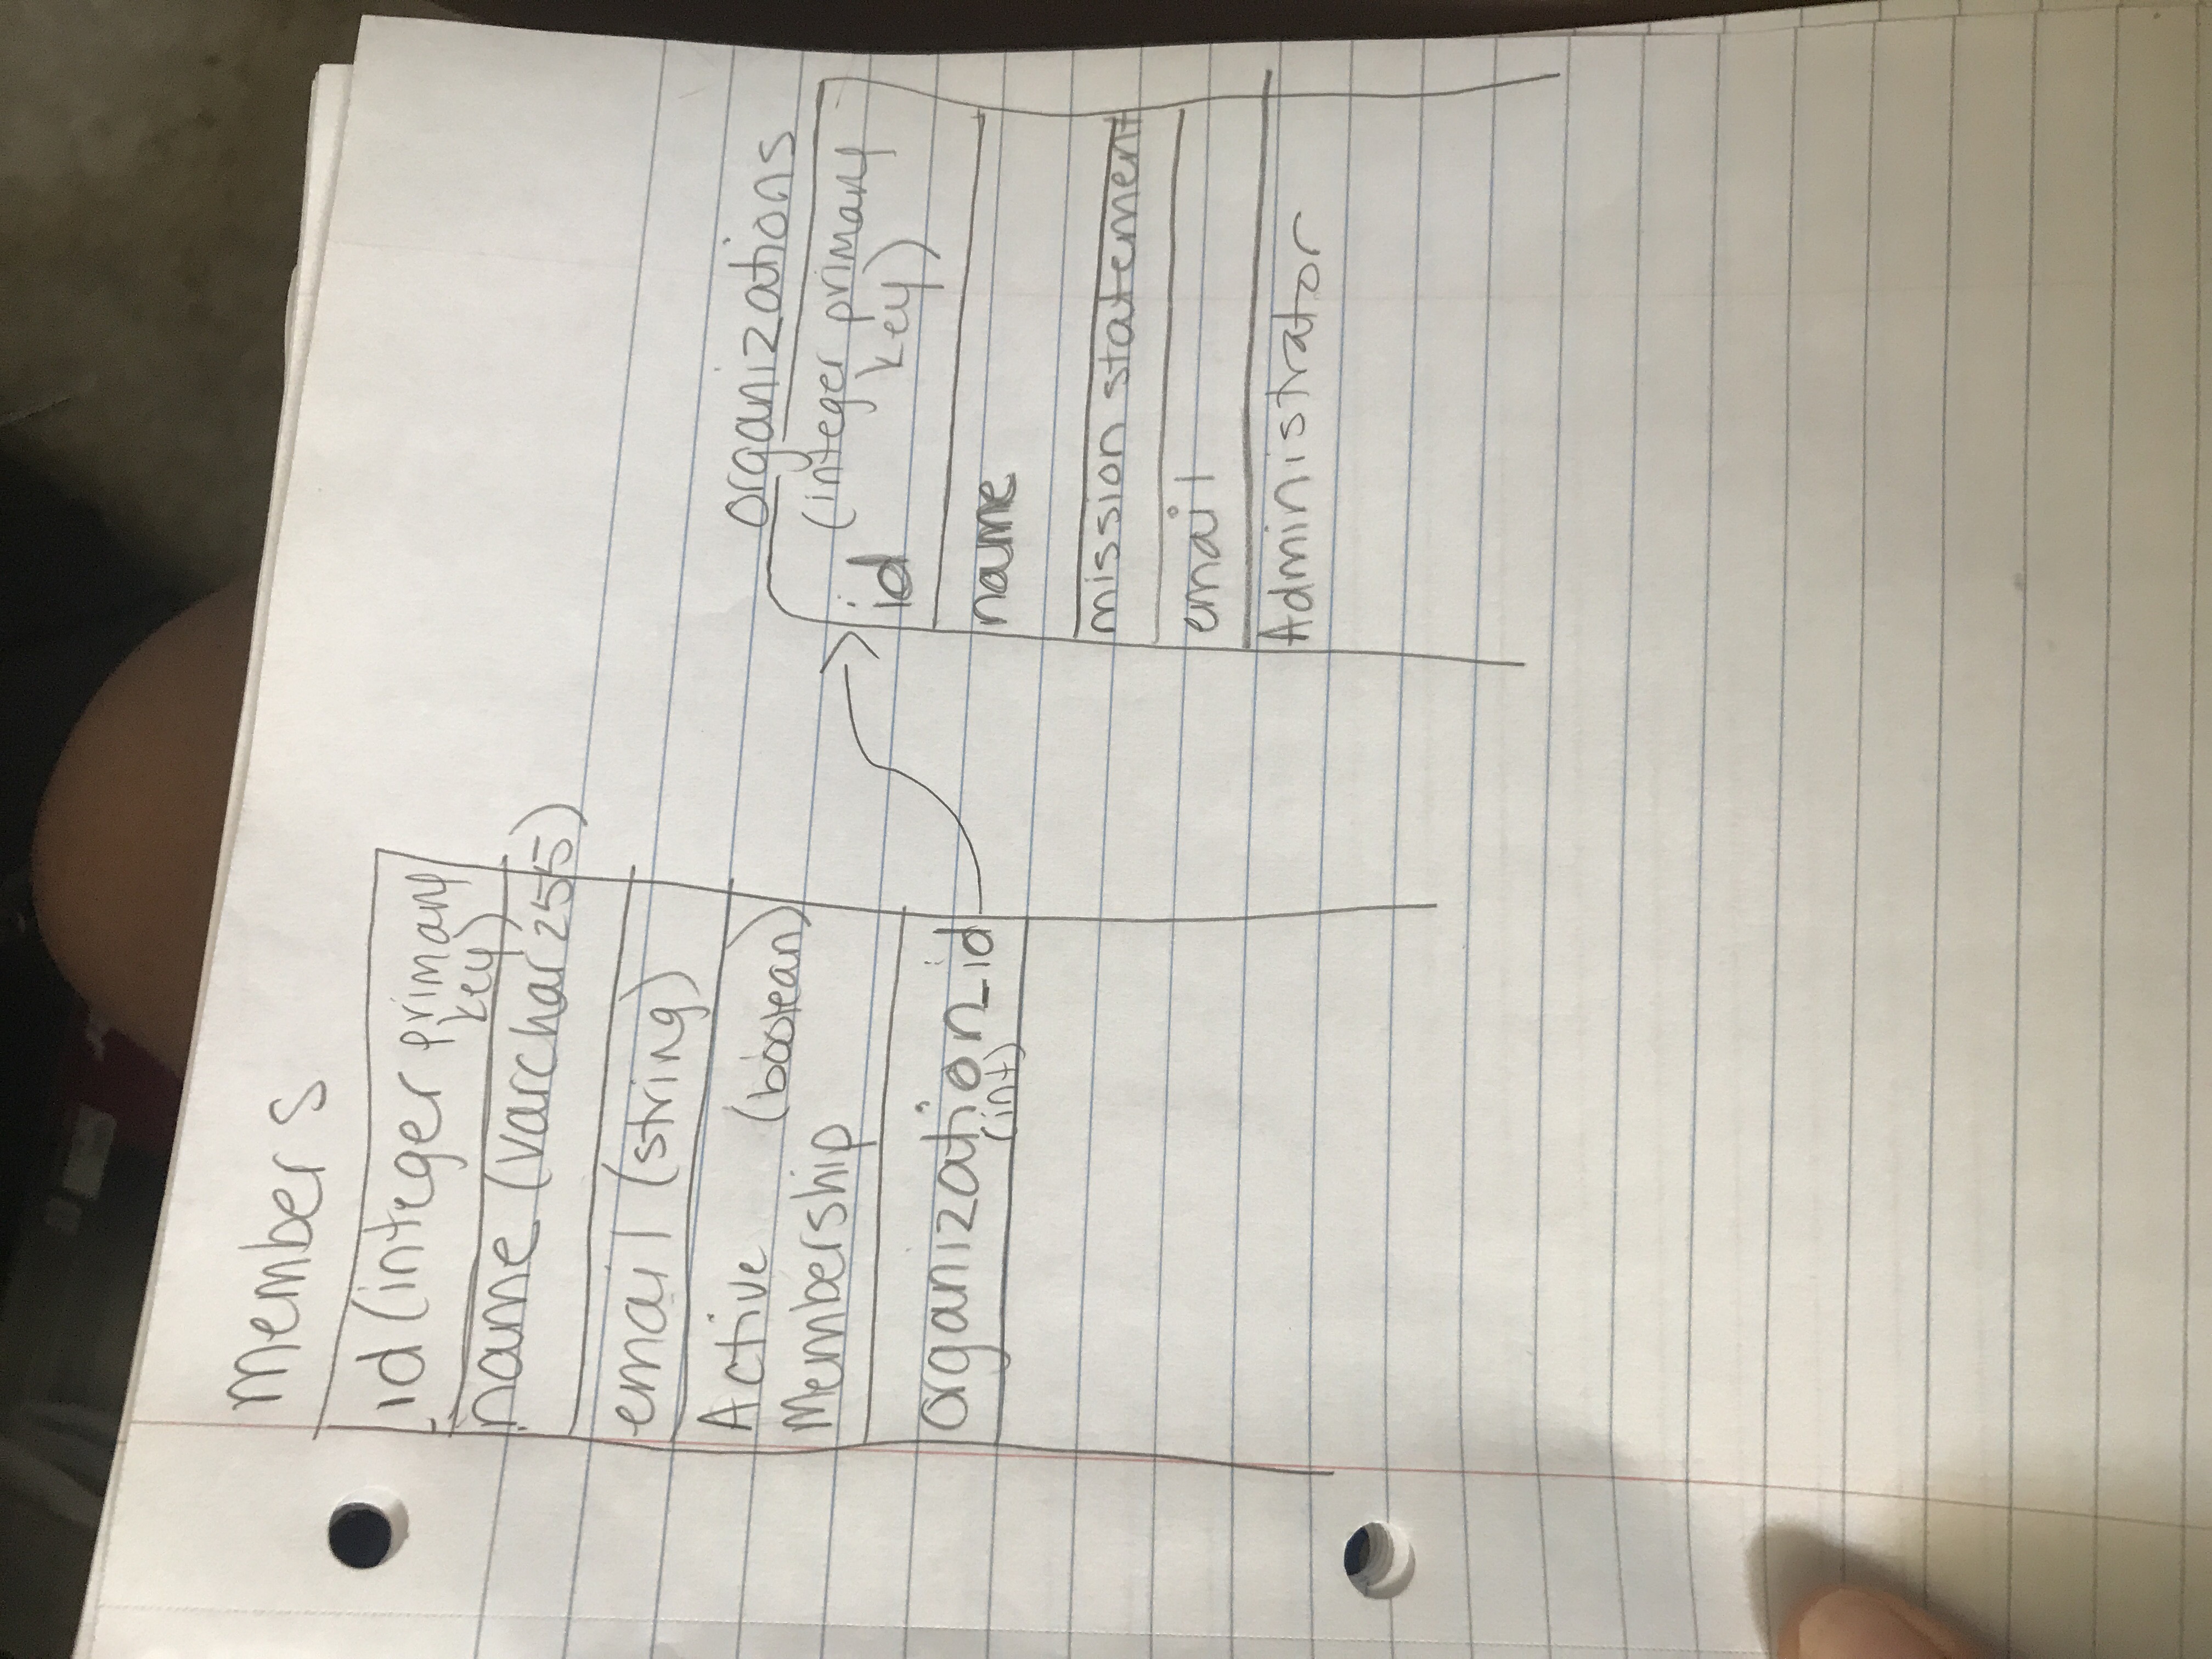 members
id (integer primary
key)
name (varchar 255)
email (string)
Active (boolean)
Membership
organization_id
(int)
organizations
(integer primary
id key)
name
mission statement
email
Administrator